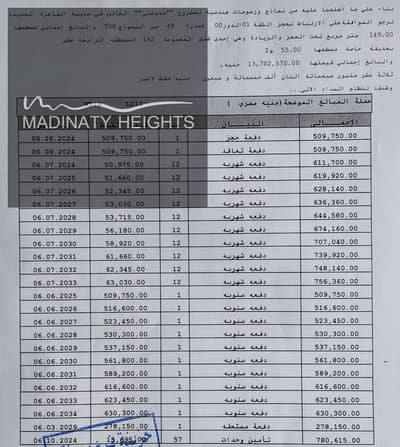 بناء على ما اطلعنا عليه من نماذج ورسومات هندسية لمشروع "مدينتي" الكائن في مدينة القاهرة الجديدة
نرجو الموافقة على الارتباط لحجز الشقة 01 الدور 00 عمارة 49 من النموذج 70B والبالغ إجمالي مسطحها
149.00 متر مربع تحت العجز والزيادة وهي إحدى شقق المجموعة 142 المنطقة الرابعة عشر
بحديقة خاصة مسطحها 55.00 م2
والبالغ إجمالي قيمتها 13,702,570.00 جنيه.
ثلاثة عشر مليون سبعمائة اثنان ألف خمسمائة و سبعون جنيه فقط لاغير
وطبقا لنظام السداد الاتي...
عملة المبالغ الموضحة (جنيه مصري)
MADINATY HEIGHTS
الإجمالى البيان
509,750.00 دفعة حجز 1 509,750.00 06.06.2024
509,750.00 دفعة تعاقد 1 509,750.00 06.09.2024
611,700.00 دفعه شهريه 12 50,975.00 06.07.2024
619,920.00 دفعه شهريه 12 51,660.00 06.07.2025
628,140.00 دفعه شهريه 12 52,345.00 06.07.2026
636,360.00 دفعه شهريه 12 53,030.00 06.07.2027
644,580.00 دفعه شهريه 12 53,715.00 06.07.2028
674,160.00 دفعه شهريه 12 56,180.00 06.07.2029
707,040.00 دفعه شهريه 12 58,920.00 06.07.2030
739,920.00 دفعه شهريه 12 61,660.00 06.07.2031
748,140.00 دفعه شهريه 12 62,345.00 06.07.2032
756,360.00 دفعه شهريه 12 63,030.00 06.07.2033
509,750.00 دفعه سنويه 1 509,750.00 06.06.2025
516,600.00 دفعه سنويه 1 516,600.00 06.06.2026
523,450.00 دفعه سنويه 1 523,450.00 06.06.2027
530,300.00 دفعه سنويه 1 530,300.00 06.06.2028
537,150.00 دفعه سنويه 1 537,150.00 06.06.2029
561,800.00 دفعه سنويه 1 561,800.00 06.06.2030
589,200.00 دفعه سنويه 1 589,200.00 06.06.2031
616,600.00 دفعه سنويه 1 616,600.00 06.06.2032
623,450.00 دفعه سنويه 1 623,450.00 06.06.2033
630,300.00 دفعه سنويه 1 630,300.00 06.06.2034
278,150.00 دفعة مستحقة 1 278,150.00 06.03.2029
780,615.00 تأمين وحدات 57 13,695.00 06.10.2024